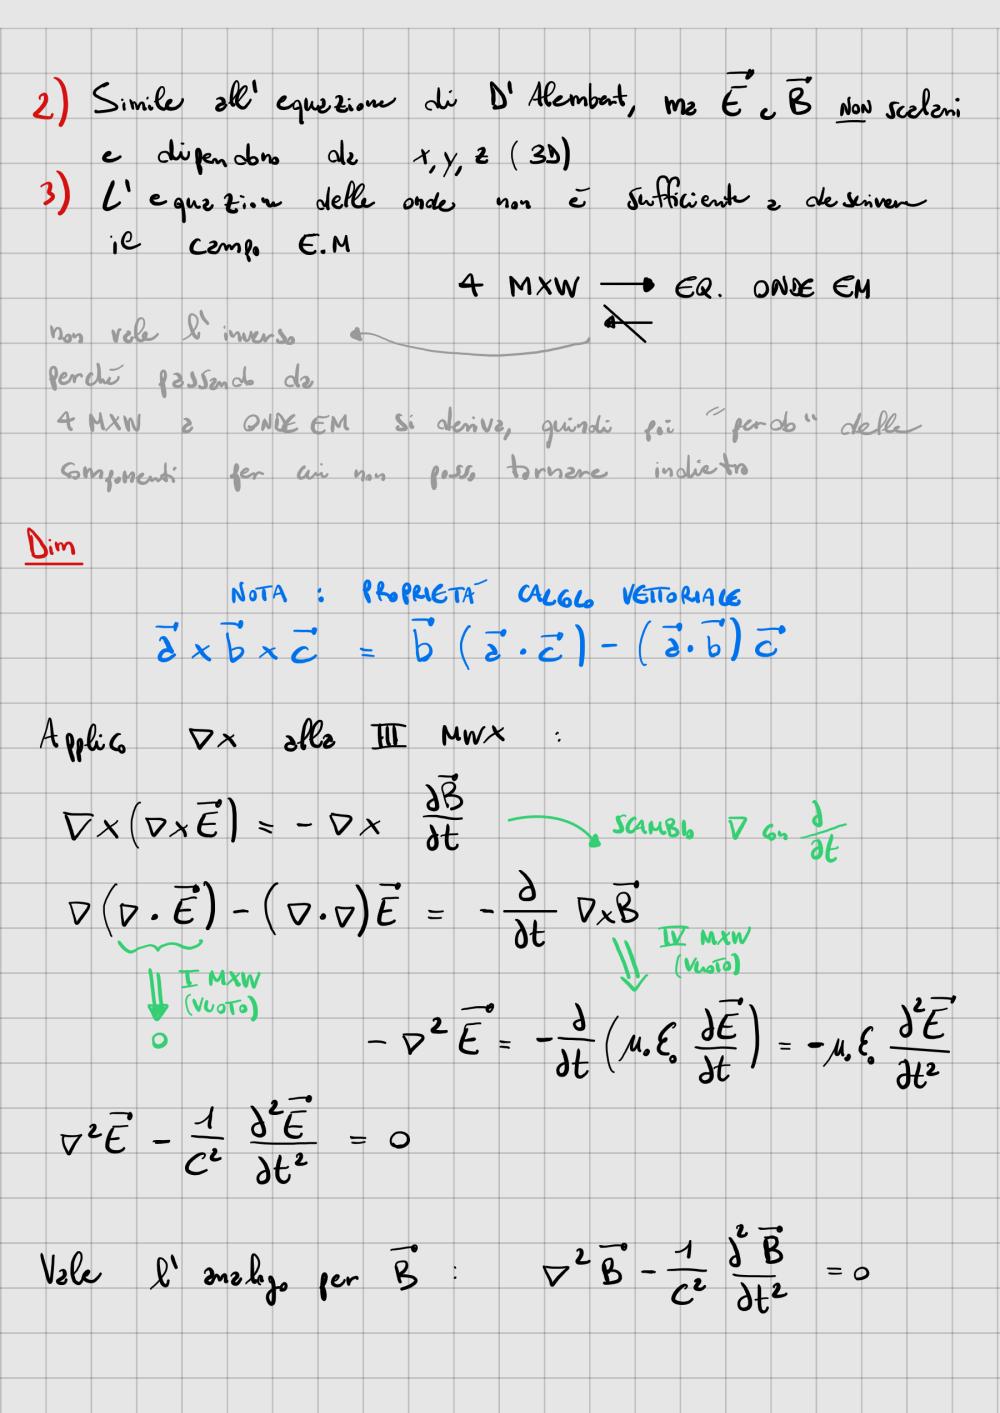 2) Simile all' equazione di D' Alembert, ma E⃗ e B⃗ NON scalari
e dipendono da x, y, z (3D)
3) L' equazione delle onde non è sufficiente a descrivere
il campo E.M
4 MXW ⟶ EQ. ONDE EM
non vale l' inverso
perché passando da
4 MXW a ONDE EM si deriva, quindi poi "perdo" delle
componenti per cui non posso tornare indietro
Dim
NOTA : PROPRIETÀ CALCOLO VETTORIALE
a⃗ × b⃗ × c⃗ = b⃗ (a⃗ · c⃗) - (a⃗ · b⃗) c⃗
Applico ∇× alla III MWX :
∇×(∇×E⃗) = - ∇× ∂B⃗/∂t
SCAMBIO ∇ con ∂/∂t
∇(∇ · E⃗) - (∇·∇)E⃗ = - ∂/∂t ∇×B⃗
I MXW
(VUOTO)
0
IV MXW
(VUOTO)
- ∇² E⃗ = - ∂/∂t (μ₀ ε₀ ∂E⃗/∂t) = - μ₀ ε₀ ∂²E⃗/∂t²
∇²E⃗ - 1/C² ∂²E⃗/∂t² = 0
Vale l' analogo per B⃗ : ∇² B⃗ - 1/C² ∂²B⃗/∂t² = 0